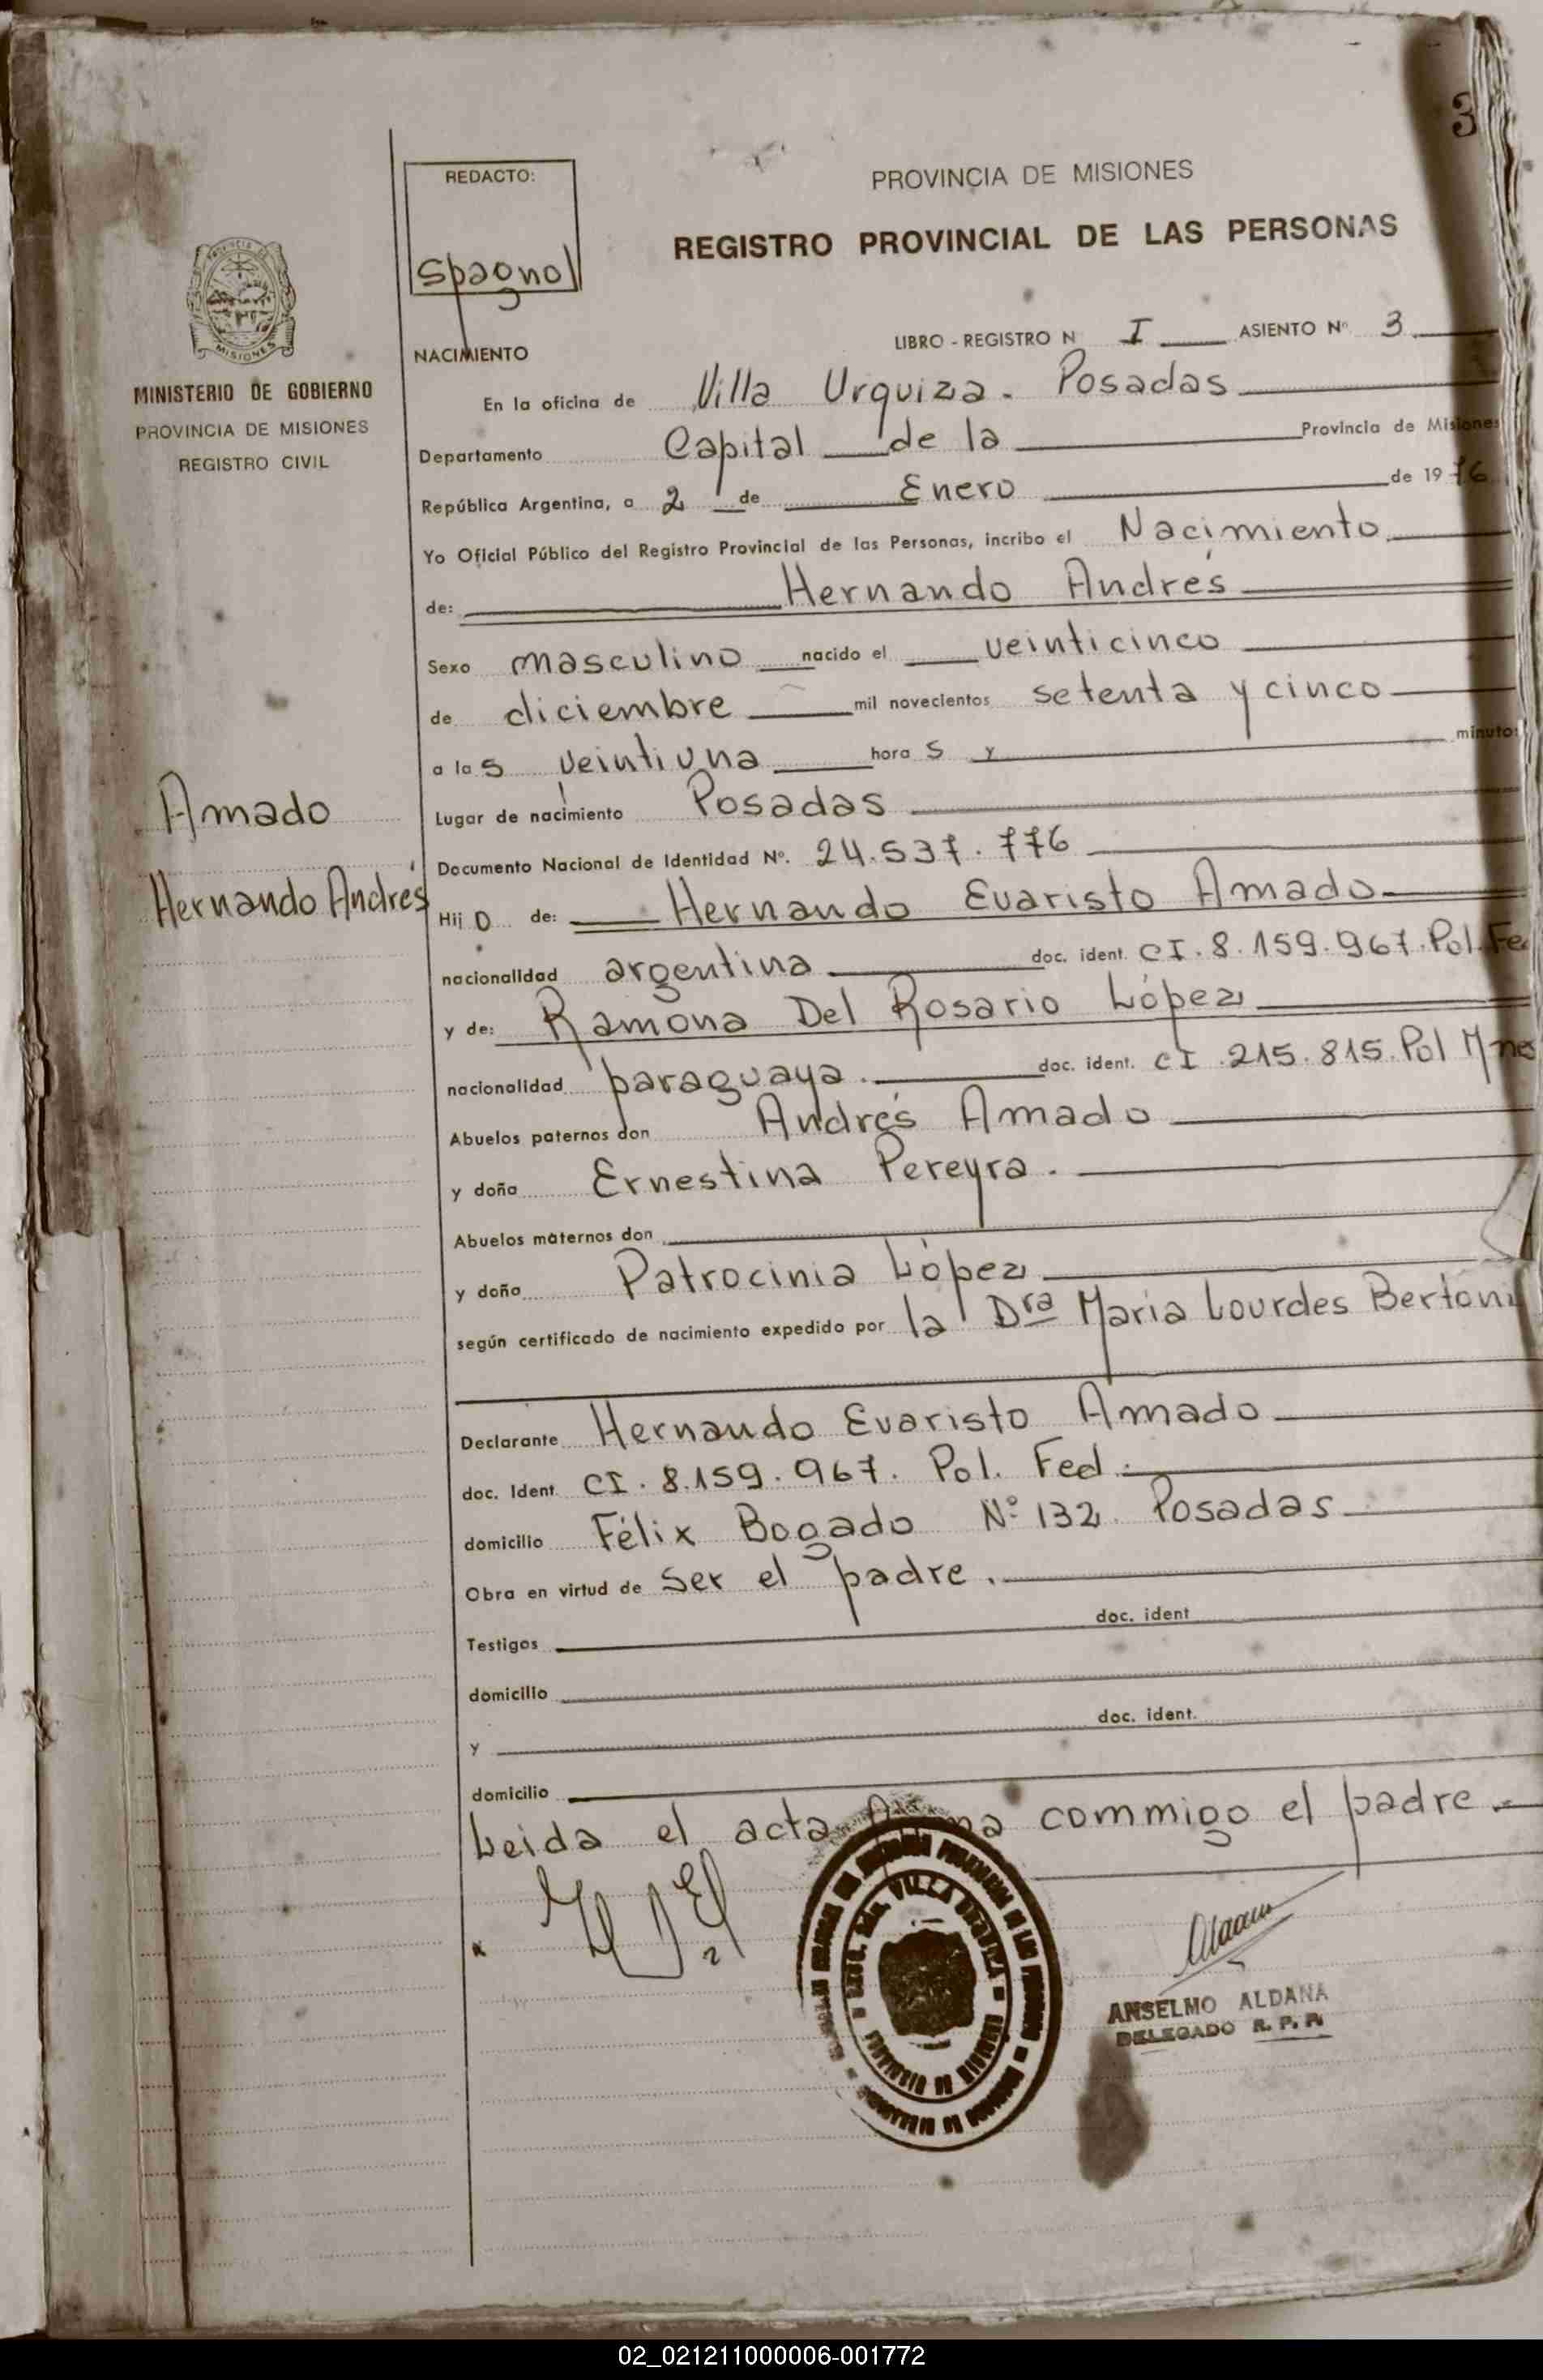 3
REDACTO:
Spagnol
PROVINCIA DE MISIONES
REGISTRO PROVINCIAL DE LAS PERSONAS
MISIONES
MINISTERIO DE GOBIERNO
PROVINCIA DE MISIONES
REGISTRO CIVIL
NACIMIENTO
LIBRO - REGISTRO N I ASIENTO Nº 3
En la oficina de Villa Urquiza - Posadas
Departamento Capital de la Provincia de Misiones
República Argentina, a 2 de Enero de 1976
Yo Oficial Público del Registro Provincial de las Personas, incribo el Nacimiento
de: Hernando Andrés
Sexo masculino nacido el veinticinco
de diciembre mil novecientos setenta y cinco
a las veintiuna horas y minutos
Amado
Lugar de nacimiento Posadas
Documento Nacional de Identidad Nº. 24.537.776
Hernando Andrés
Hijo de: Hernando Evaristo Amado
nacionalidad argentina doc. ident. CI. 8.159.967. Pol. Fed
y de: Ramona Del Rosario López
nacionalidad paraguaya. doc. ident. CI. 215.815. Pol Mnes
Abuelos paternos don Andrés Amado
y doña Ernestina Pereyra.
Abuelos maternos don
y doña Patrocinia López
según certificado de nacimiento expedido por la Dra Maria Lourdes Bertoni
Declarante Hernando Evaristo Amado
doc. Ident CI. 8.159.967. Pol. Fed.
domicilio Félix Bogado Nº 132. Posadas
Obra en virtud de ser el padre.
Testigos doc. ident
domicilio
y doc. ident.
domicilio
Leida el acta firma commigo el padre.
VILLA URQUIZA
ANSELMO ALDANA
DELEGADO R. P. P.
02_021211000006-001772